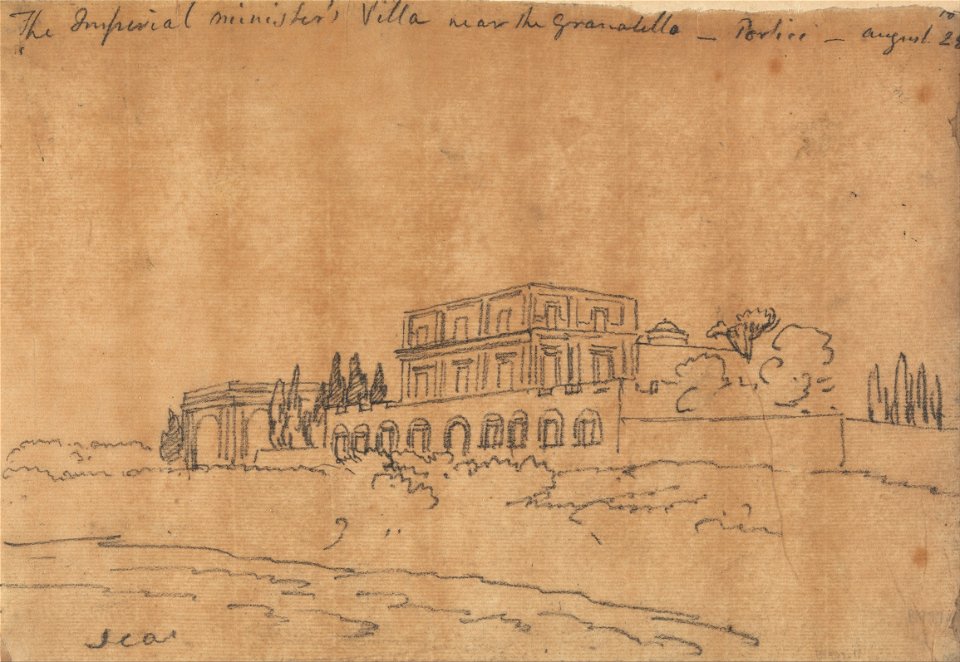 The Imperial minister's Villa near the Granatello – Portici – august 28
Sea